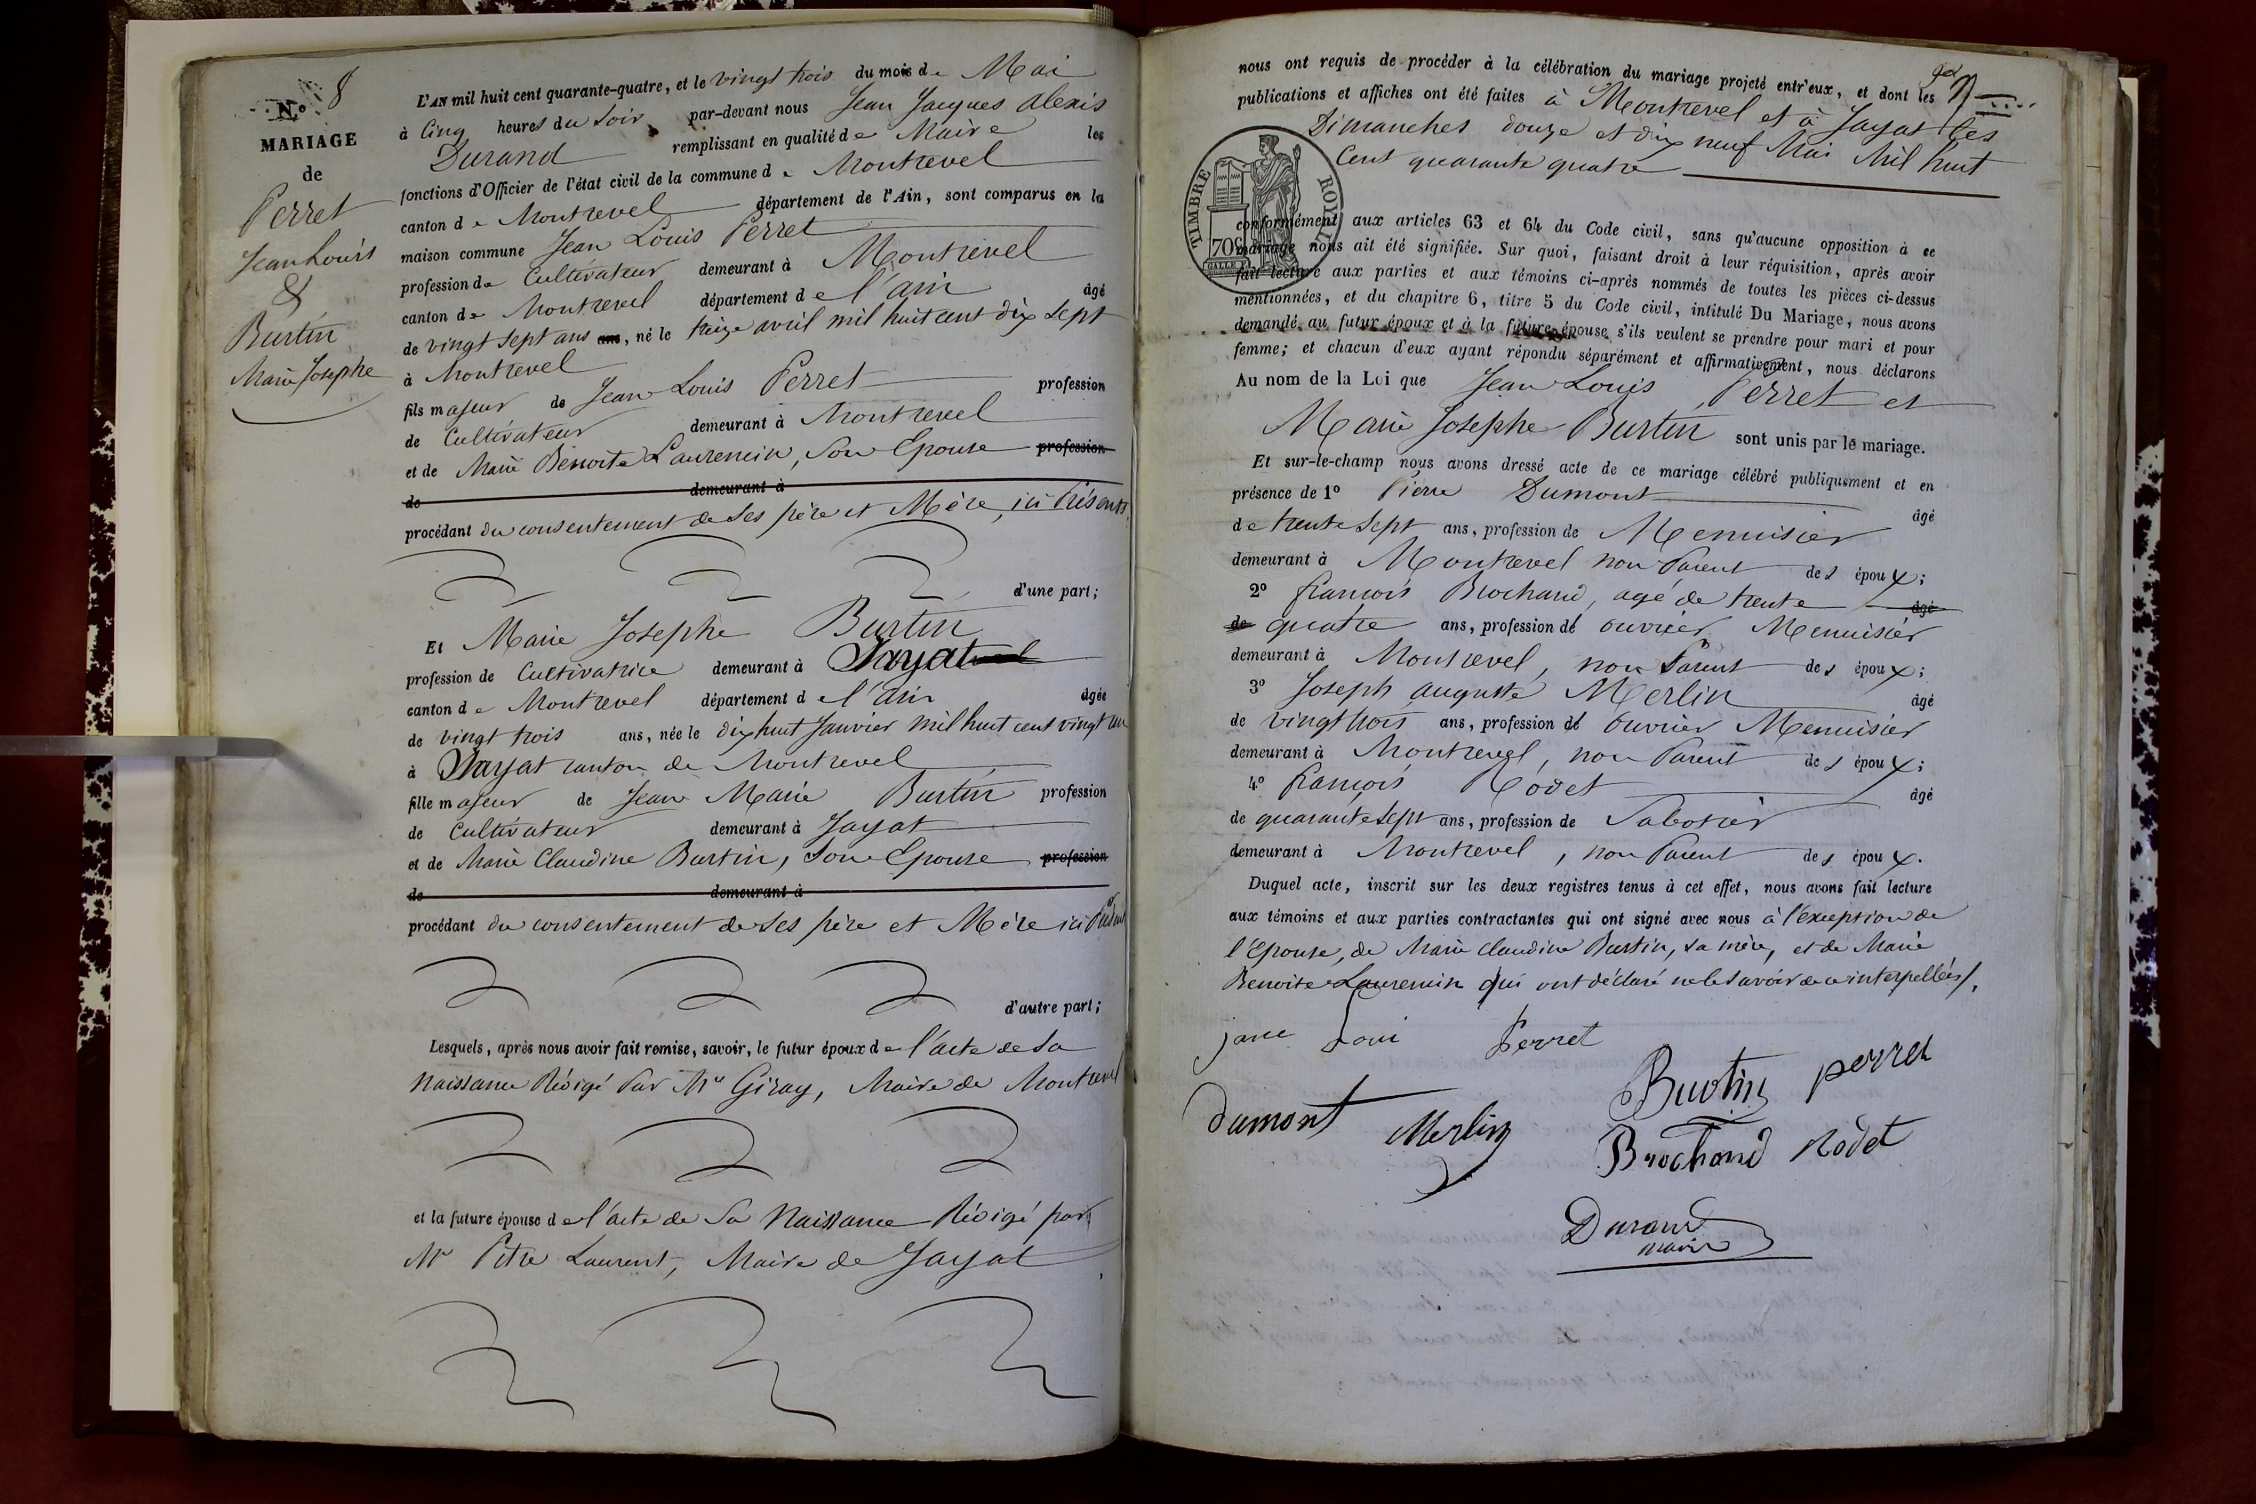 N.º 8
MARIAGE
de
Perret
Jean Louis
&
Burtin
Marie Josephe
L'AN mil huit cent quarante-quatre, et le vingt trois du mois de Mai
à Cinq heures du Soir par-devant nous Jean Jacques alexis
Durand remplissant en qualité de Maire les
fonctions d'Officier de l'état civil de la commune de Montrevel
canton de Montrevel département de l'Ain, sont comparus en la
maison commune Jean Louis Perret
profession de Cultivateur demeurant à Montrevel
canton de Montrevel département de l'ain âgé
de vingt sept ans ans, né le treize avril mil huit cent dix sept
à Montrevel
fils majeur de Jean Louis Perret profession
de Cultivateur demeurant à Montrevel
et de Marie Benoite Laurencin, Son Epouse profession
de demeurant à
procédant du consentement de Ses père et Mère, ici Présents,
d'une part;
Et Marie Josephe Burtin
profession de Cultivatrice demeurant à Jayat
canton de Montrevel département de l'ain âgée
de vingt trois ans, née le dix huit Janvier mil huit cent vingt un
à Jayat canton de Montrevel
fille majeur de Jean Marie Burtin profession
de Cultivateur demeurant à Jayat
et de Marie Claudine Burtin, Son Epouse profession
de demeurant à
procédant du consentement de Ses père et Mère ici
d'autre part;
Lesquels, après nous avoir fait remise, savoir, le futur époux de l'acte de Sa
Naissance Rédigé Par Mr Giray, Maire de Montrevel
et la future épouse de l'acte de Sa Naissance Rédigé par
Mr Pitre Laurent, Maire de Jayat
nous ont requis de procéder à la célébration du mariage projeté entr'eux, et dont les
publications et affiches ont été faites à Montrevel et à Jayat les
Dimanches douze et dix neuf Mai Mil huit
Cent quarante quatre
TIMBRE ROYAL
70c
conformément aux articles 63 et 64 du Code civil, sans qu'aucune opposition à ce
mariage nous ait été signifiée. Sur quoi, faisant droit à leur réquisition, après avoir
fait lecture aux parties et aux témoins ci-après nommés de toutes les pièces ci-dessus
mentionnées, et du chapitre 6, titre 5 du Code civil, intitulé Du Mariage, nous avons
demandé au futur époux et à la future épouse s'ils veulent se prendre pour mari et pour
femme; et chacun d'eux ayant répondu séparément et affirmativement, nous déclarons
Au nom de la Loi que Jean Louis Perret et
Marie Josephe Burtin sont unis par le mariage.
Et sur-le-champ nous avons dressé acte de ce mariage célébré publiquement et en
présence de 1º Pierre Dumont âgé
de trente Sept ans, profession de Menuisier
demeurant à Montrevel non Parent des époux;
2º françois Brochand, agé de trente âgé
de quatre ans, profession d' ouvrier Menuisier
demeurant à Montrevel, non Parent des époux;
3º Joseph auguste Merlin âgé
de vingt trois ans, profession d' ouvrier Menuisier
demeurant à Montrevel, non Parent des époux;
4º françois Rodet âgé
de quarante Sept ans, profession de Sabotier
demeurant à Montrevel, non Parent des époux.
Duquel acte, inscrit sur les deux registres tenus à cet effet, nous avons fait lecture
aux témoins et aux parties contractantes qui ont signé avec nous à l'exception de
l'Epouse, de Marie Claudine Burtin, sa mère, et de Marie
Benoite Laurencin qui ont déclaré ne le savoir de ce interpellées/.
jane Loui Perret
Burtin perret
dumont Merlin Brochand Rodet
Durand
maire